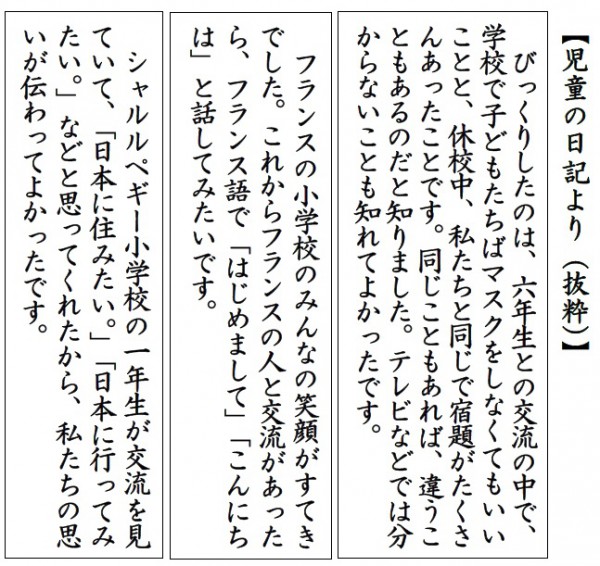 【児童の日記より（抜粋）】
びっくりしたのは、六年生との交流の中で、
学校で子どもたちばマスクをしなくてもいい
ことと、休校中、私たちと同じで宿題がたくさ
んあったことです。同じこともあれば、違うこ
ともあるのだと知りました。テレビなどでは分
からないことも知れてよかったです。
フランスの小学校のみんなの笑顔がすてき
でした。これからフランスの人と交流があった
ら、フランス語で「はじめまして」「こんにち
は」と話してみたいです。
シャルルペギー小学校の一年生が交流を見
ていて、「日本に住みたい。」「日本に行ってみ
たい。」などと思ってくれたから、私たちの思
いが伝わってよかったです。